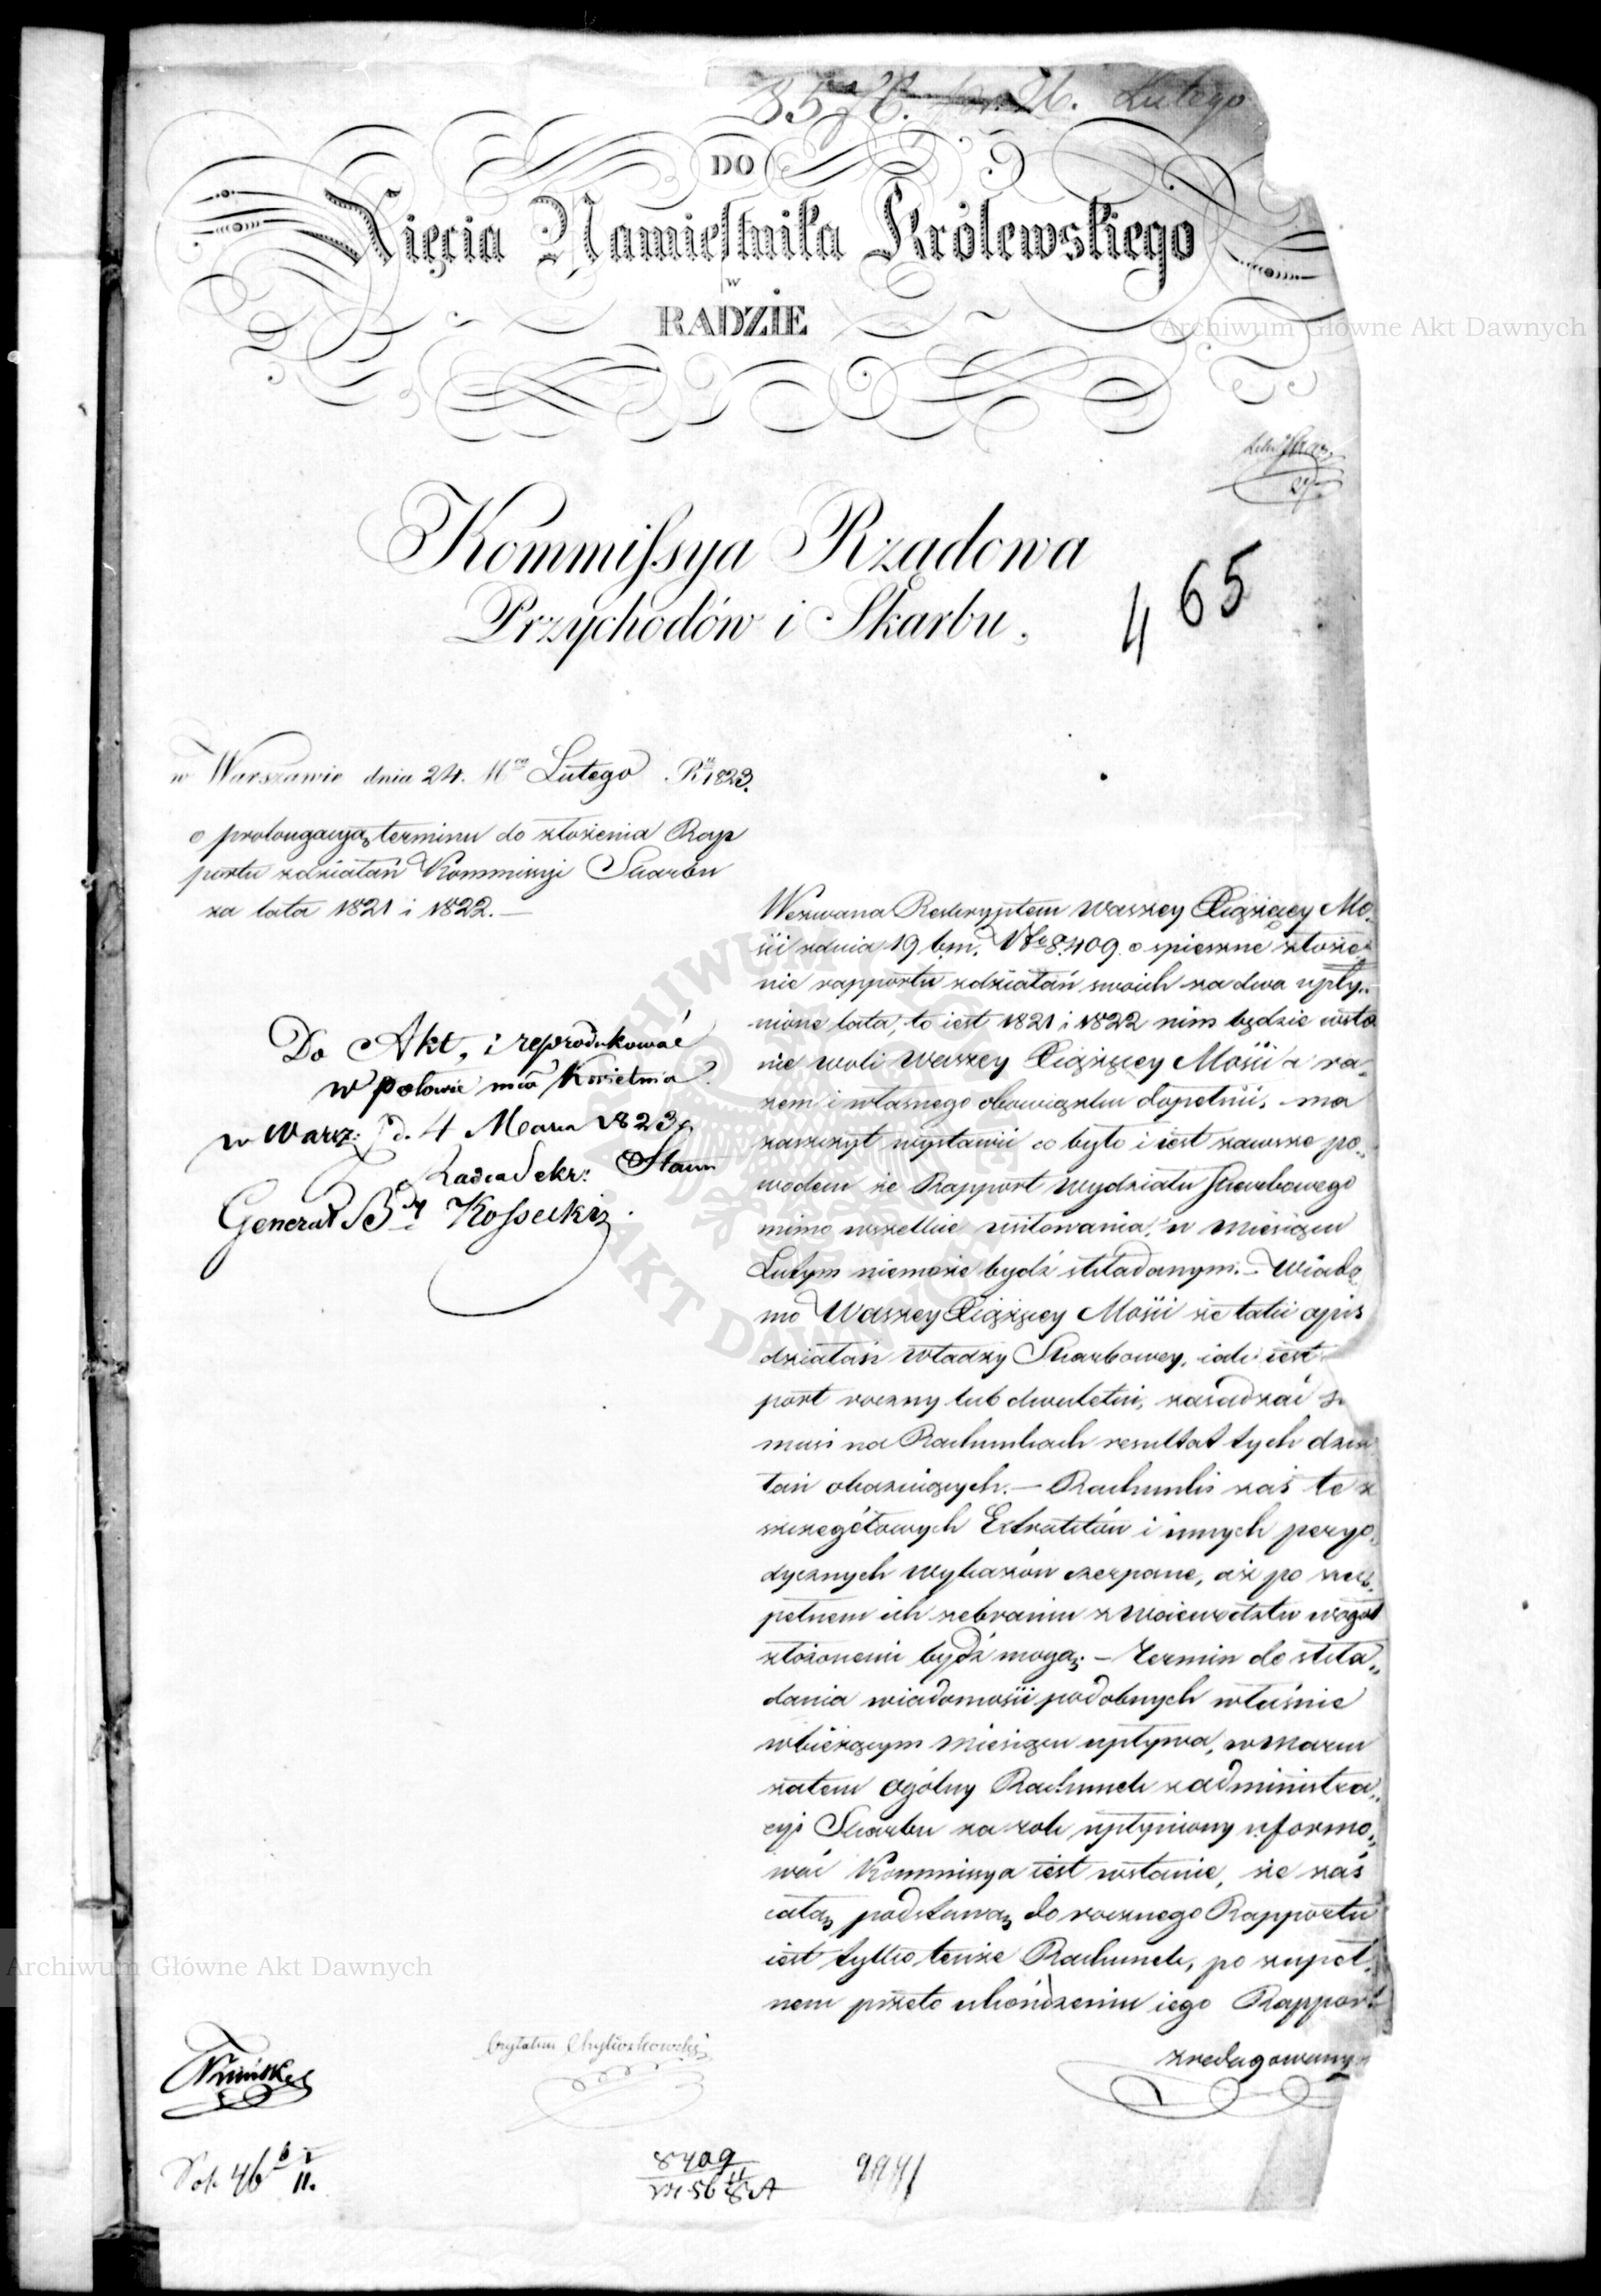 26. Lutego
DO
Xięcia Namiestnika Królewskiego
w
RADZIE
Archiwum Główne Akt Dawnych
Kommissya Rządowa
Przychodów i Skarbu,
465
w Warszawie dnia 24. Mca Lutego Rku 1823.
o prolongacyą terminu do złożenia Rap
portu zdziałań Kommissyi Skarbu
za lata 1821 i 1822.—
Do Akt, i reprodukować
w połowie mca Kwietnia
w Warsz: d. 4 Marca 1823 r.
Radca Sekr: Stanu
Generał Bdy Kossecki
Wezwana Reskryptem Waszey Xiążęcey Mo„
ści zdnia 19 b.m. No 8409. o spieszne złoże„
nie rapportu zdziałań swoich za dwa upły„
nione lata, to iest 1821 i 1822 nim będzie wsta
nie woli Waszey Xiążęcey Mości a ra„
zem i własnego obowiązku dopełnić, ma
zaszczyt wystawić co było i iest zawsze po„
wodem że Rapport Wydziału Skarbowego
mimo wszelkie usiłowania, w Miesiącu
Lutym niemoże bydź składanym.— Wiado
mo Waszey Xiążęcey Mości że taki opis
działań Władzy Skarbowey, iak iest
port roczny lub dwuletni, zasadzać
musi na Rachunkach resultat tych dzia
łań okazuiących.— Rachunki zaś te z
szczegółowych Extraktów i innych peryo„
dycznych wykazów czerpane, aż po zu„
pełnem ich zebraniu z Woiewództw wogół
złożonemi bydź mogą.— Termin do skła„
dania wiadomości podobnych właśnie
wbieżącym Miesiącu upływa, w Marcu
zatem ogólny Rachunek z administra„
cyi Skarbu za rok upłyniony uformo„
wać Kommissya iest wstanie, że zaś
całą podstawą do rocznego Rapportu
iest tylko tenże Rachunek, po zupeł„
nem przeto ukończeniu iego Rapport
zredagowany
Archiwum Główne Akt Dawnych
8409
ARCHIWUM GŁÓWNE AKT DAWNYCH